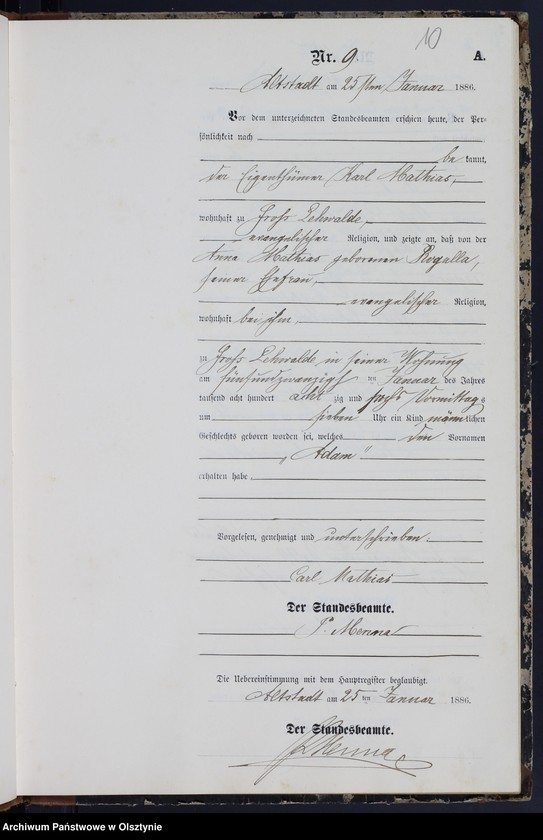 10
Nr. 9. A.
Altstadt am 25sten Januar 1886.
Vor dem unterzeichneten Standesbeamten erschien heute, der Per-
sönlichkeit nach
be kannt,
der Eigenthümer Karl Mathias,
wohnhaft zu Groß Lehwalde,
evangelischer Religion, und zeigte an, daß von der
Anna Mathias geborenen Rogalla,
seiner Ehefrau,
evangelischer Religion,
wohnhaft bei ihm
zu Groß Lehwalde in seiner Wohnung
am fünfundzwanzigst ten Januar des Jahres
tausend acht hundert acht zig und sechs Vormittags
um sieben Uhr ein Kind männlichen
Geschlechts geboren worden sei, welches den Vornamen
„Adam"
erhalten habe.
Vorgelesen, genehmigt und unterschrieben.
Carl Mathias
Der Standesbeamte.
P. Menna
Die Uebereinstimmung mit dem Hauptregister beglaubigt.
Altstadt am 25 ten Januar 1886.
Der Standesbeamte.
P Menna
Archiwum Państwowe w Olsztynie